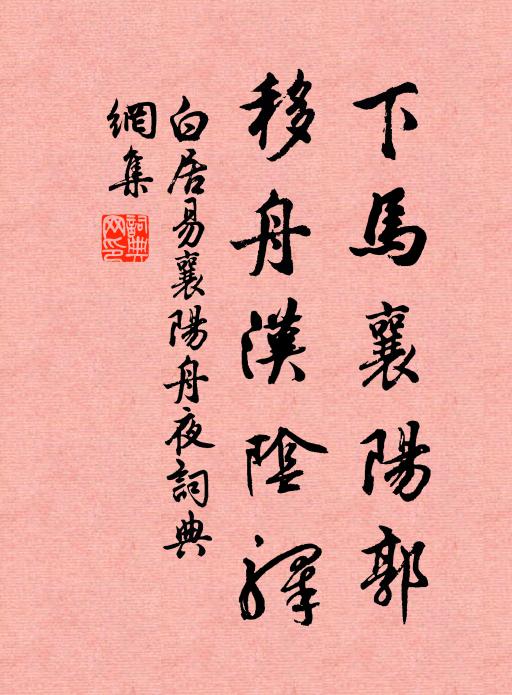 下馬襄陽郭
移舟漢陰驛
白居易襄陽舟夜詞典
網集
詞典網印